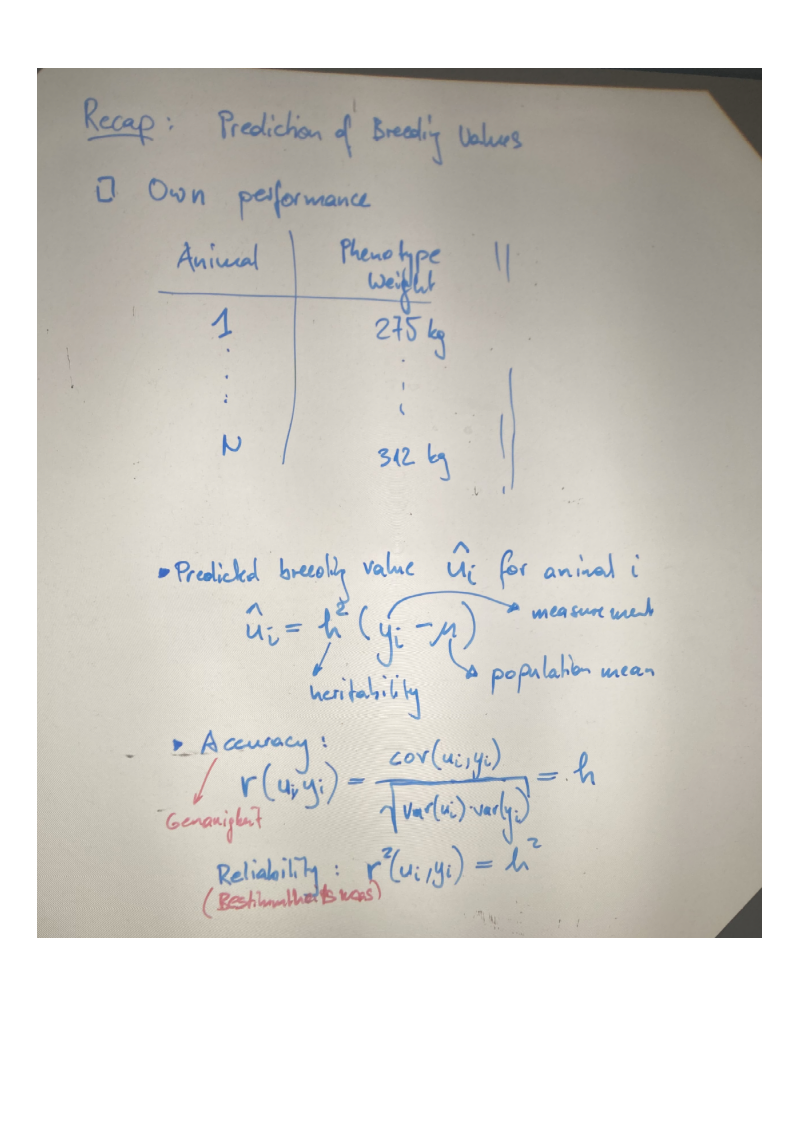 Recap: Prediction of Breeding Values
□ Own performance
Animal | Phenotype
Weight
1 | 275 kg
N | 312 kg
▸ Predicted breeding value û_i for animal i
û_i = h² (y_i - μ) → measurement
heritability → population mean
▸ Accuracy:
r(u_i, y_i) = cov(u_i, y_i) / √(var(u_i) · var(y_i)) = h
Genauigkeit
Reliability: r²(u_i, y_i) = h²
(Bestimmtheitsmass)